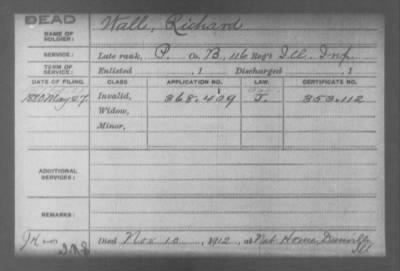 DEAD
NAME OF SOLDIER: Wall, Richard
SERVICE: Late rank, P. Co. B, 116 Reg't Ill. Inf.
TERM OF SERVICE: Enlisted , 1 Discharged , 1
DATE OF FILING. CLASS APPLICATION NO. LAW. CERTIFICATE NO.
1880 May 27. Invalid, 368.409 J. 353.112
Widow,
Minor,
ADDITIONAL SERVICES:
REMARKS:
Died Nov 10, 1912, at Nat. Home, Danville, Ill.